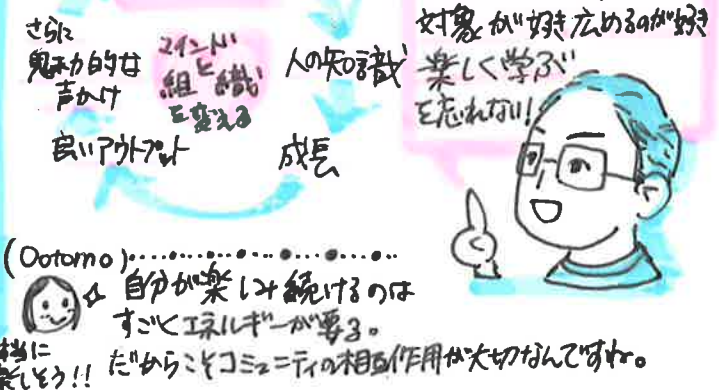 さらに
魅力的な
声かけ
マインドと
組織
を変える
人の知識
良いアウトプット
成長
対象が好き広めるのが好き
楽しく学ぶ
を忘れない!
(Ootomo)
自分が楽しみ続けるのは
すごくエネルギーが要る。
だからこそコミュニティの相互作用が大切なんですね。
楽しそう!!